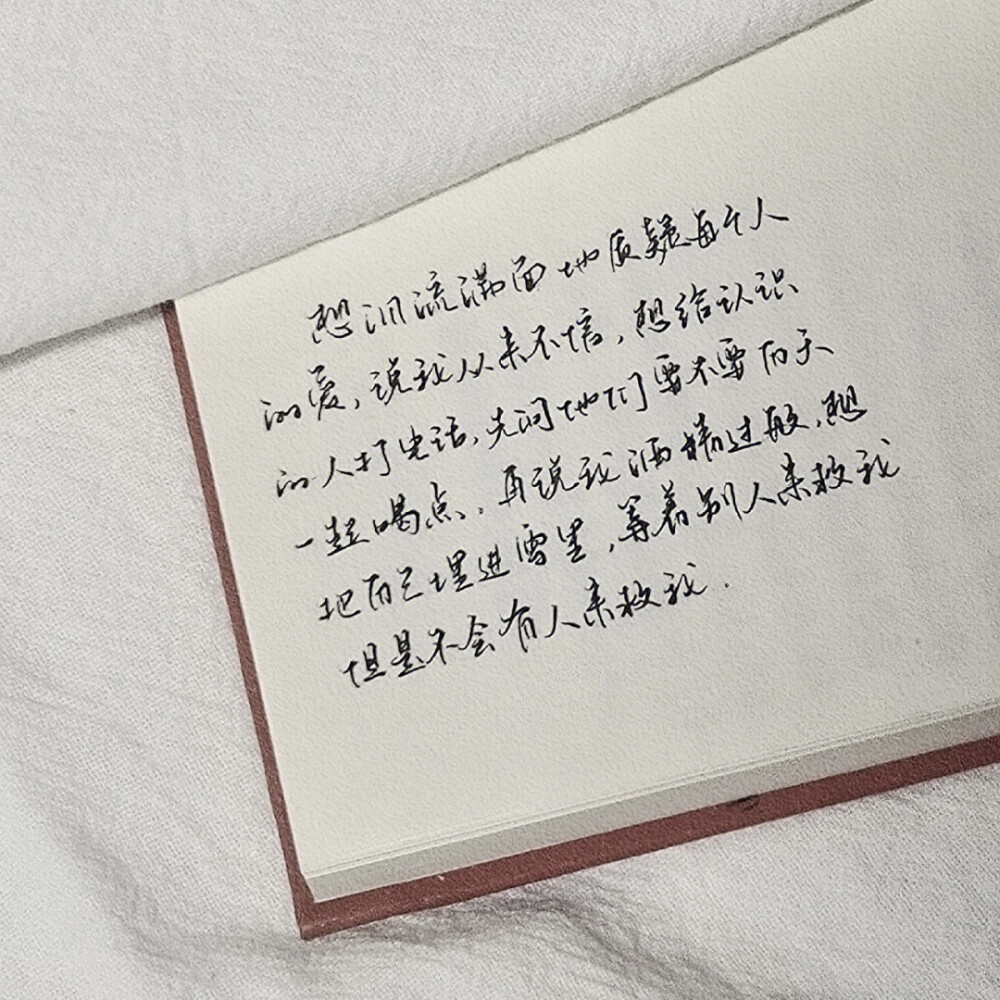 想泪流满面地质疑每个人
的爱，说我从来不信，想给认识
的人打电话，先问他们要不要雨天
一起喝点，再说我酒精过敏，想
把自己埋进雪里，等着别人来救我
但是不会有人来救我．